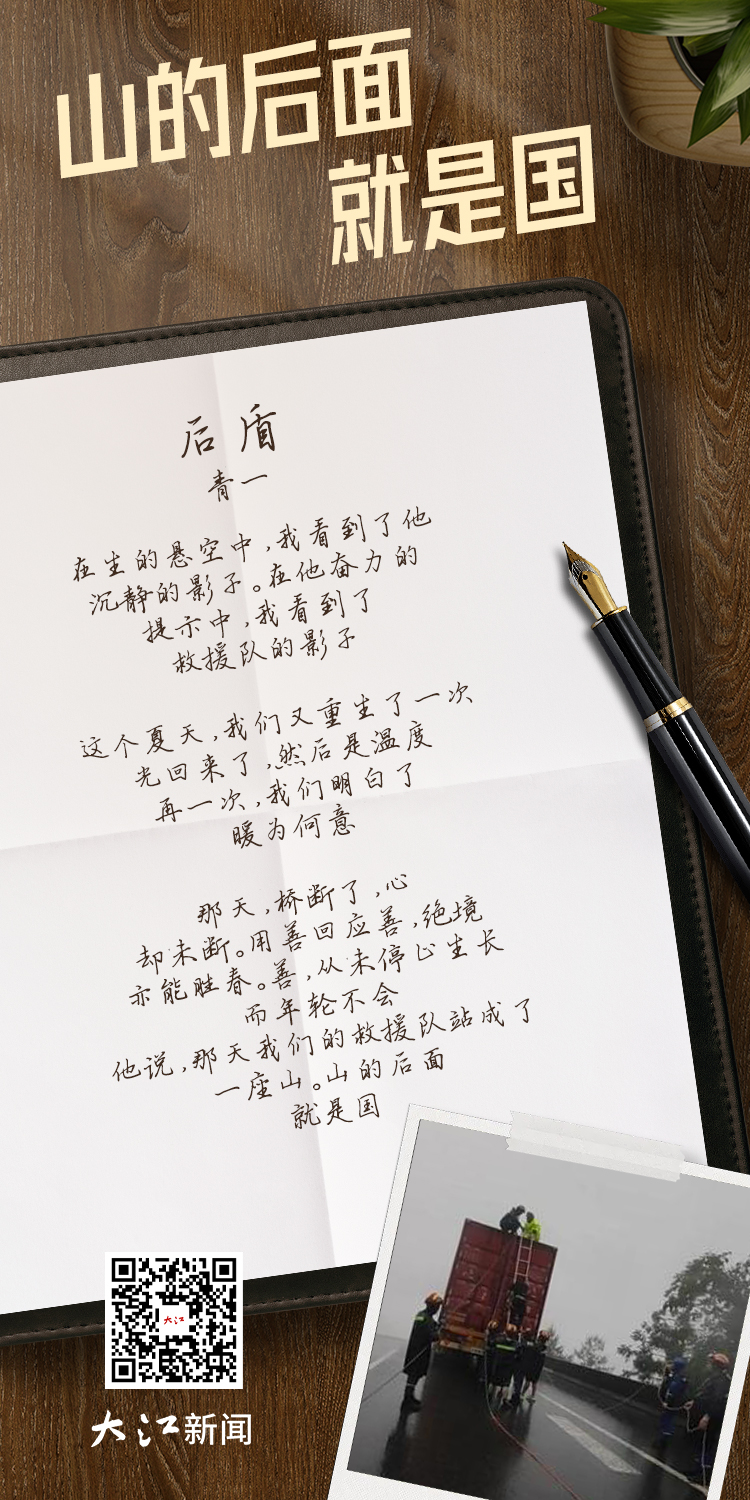 山的后面
就是国
后盾
青一
在生的悬空中,我看到了他
沉静的影子。在他奋力的
提示中,我看到了
救援队的影子
这个夏天,我们又重生了一次
光回来了,然后是温度
再一次,我们明白了
暖为何意
那天,桥断了,心
却未断。用善回应善,绝境
亦能胜春。善,从未停止生长
而年轮不会
他说,那天我们的救援队站成了
一座山。山的后面
就是国
大江
大江新闻